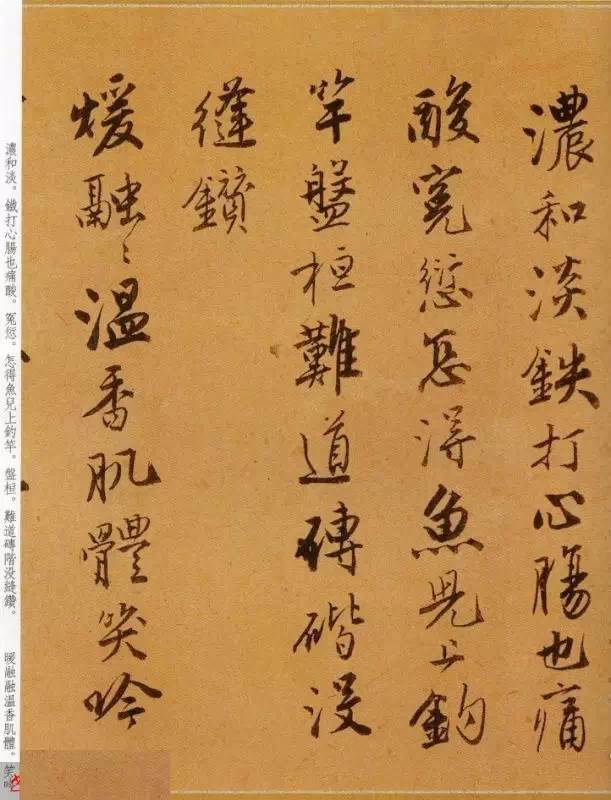 濃和淡鉄打心腸也痛
酸寃愆怎得魚兒上鈎
竿盤桓難道磚階没
縫鑽
煖融〻溫香肌體笑吟
濃和淡。鐵打心腸也痛酸。冤愆。怎得魚兒上釣竿。盤桓。難道磚階没縫鑽。
暖融融溫香肌體。笑吟